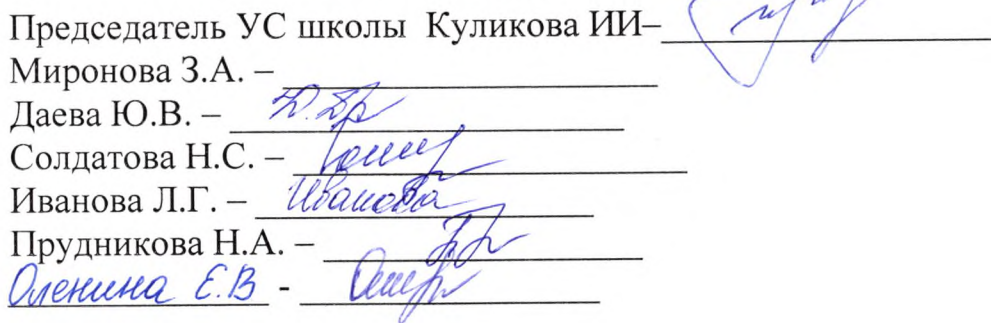 Председатель УС школы Куликова ИИ–
Миронова З.А. –
Даева Ю.В. –
Солдатова Н.С. –
Иванова Л.Г. – Иванова
Прудникова Н.А. –
Оленина Е.В -